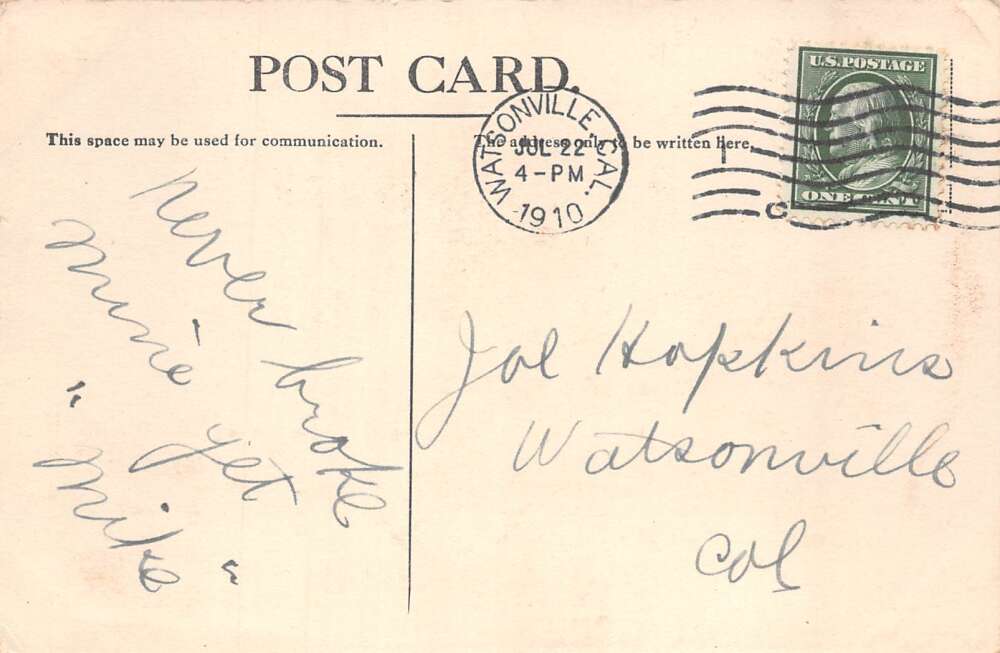 POST CARD.
This space may be used for communication.
The address only to be written here.
WATSONVILLE, CAL.
JUL 22
4-PM
1910
U.S. POSTAGE
ONE CENT
C
never broke
mine yet
"Mike"
Joe Hopkins
Watsonville
Cal